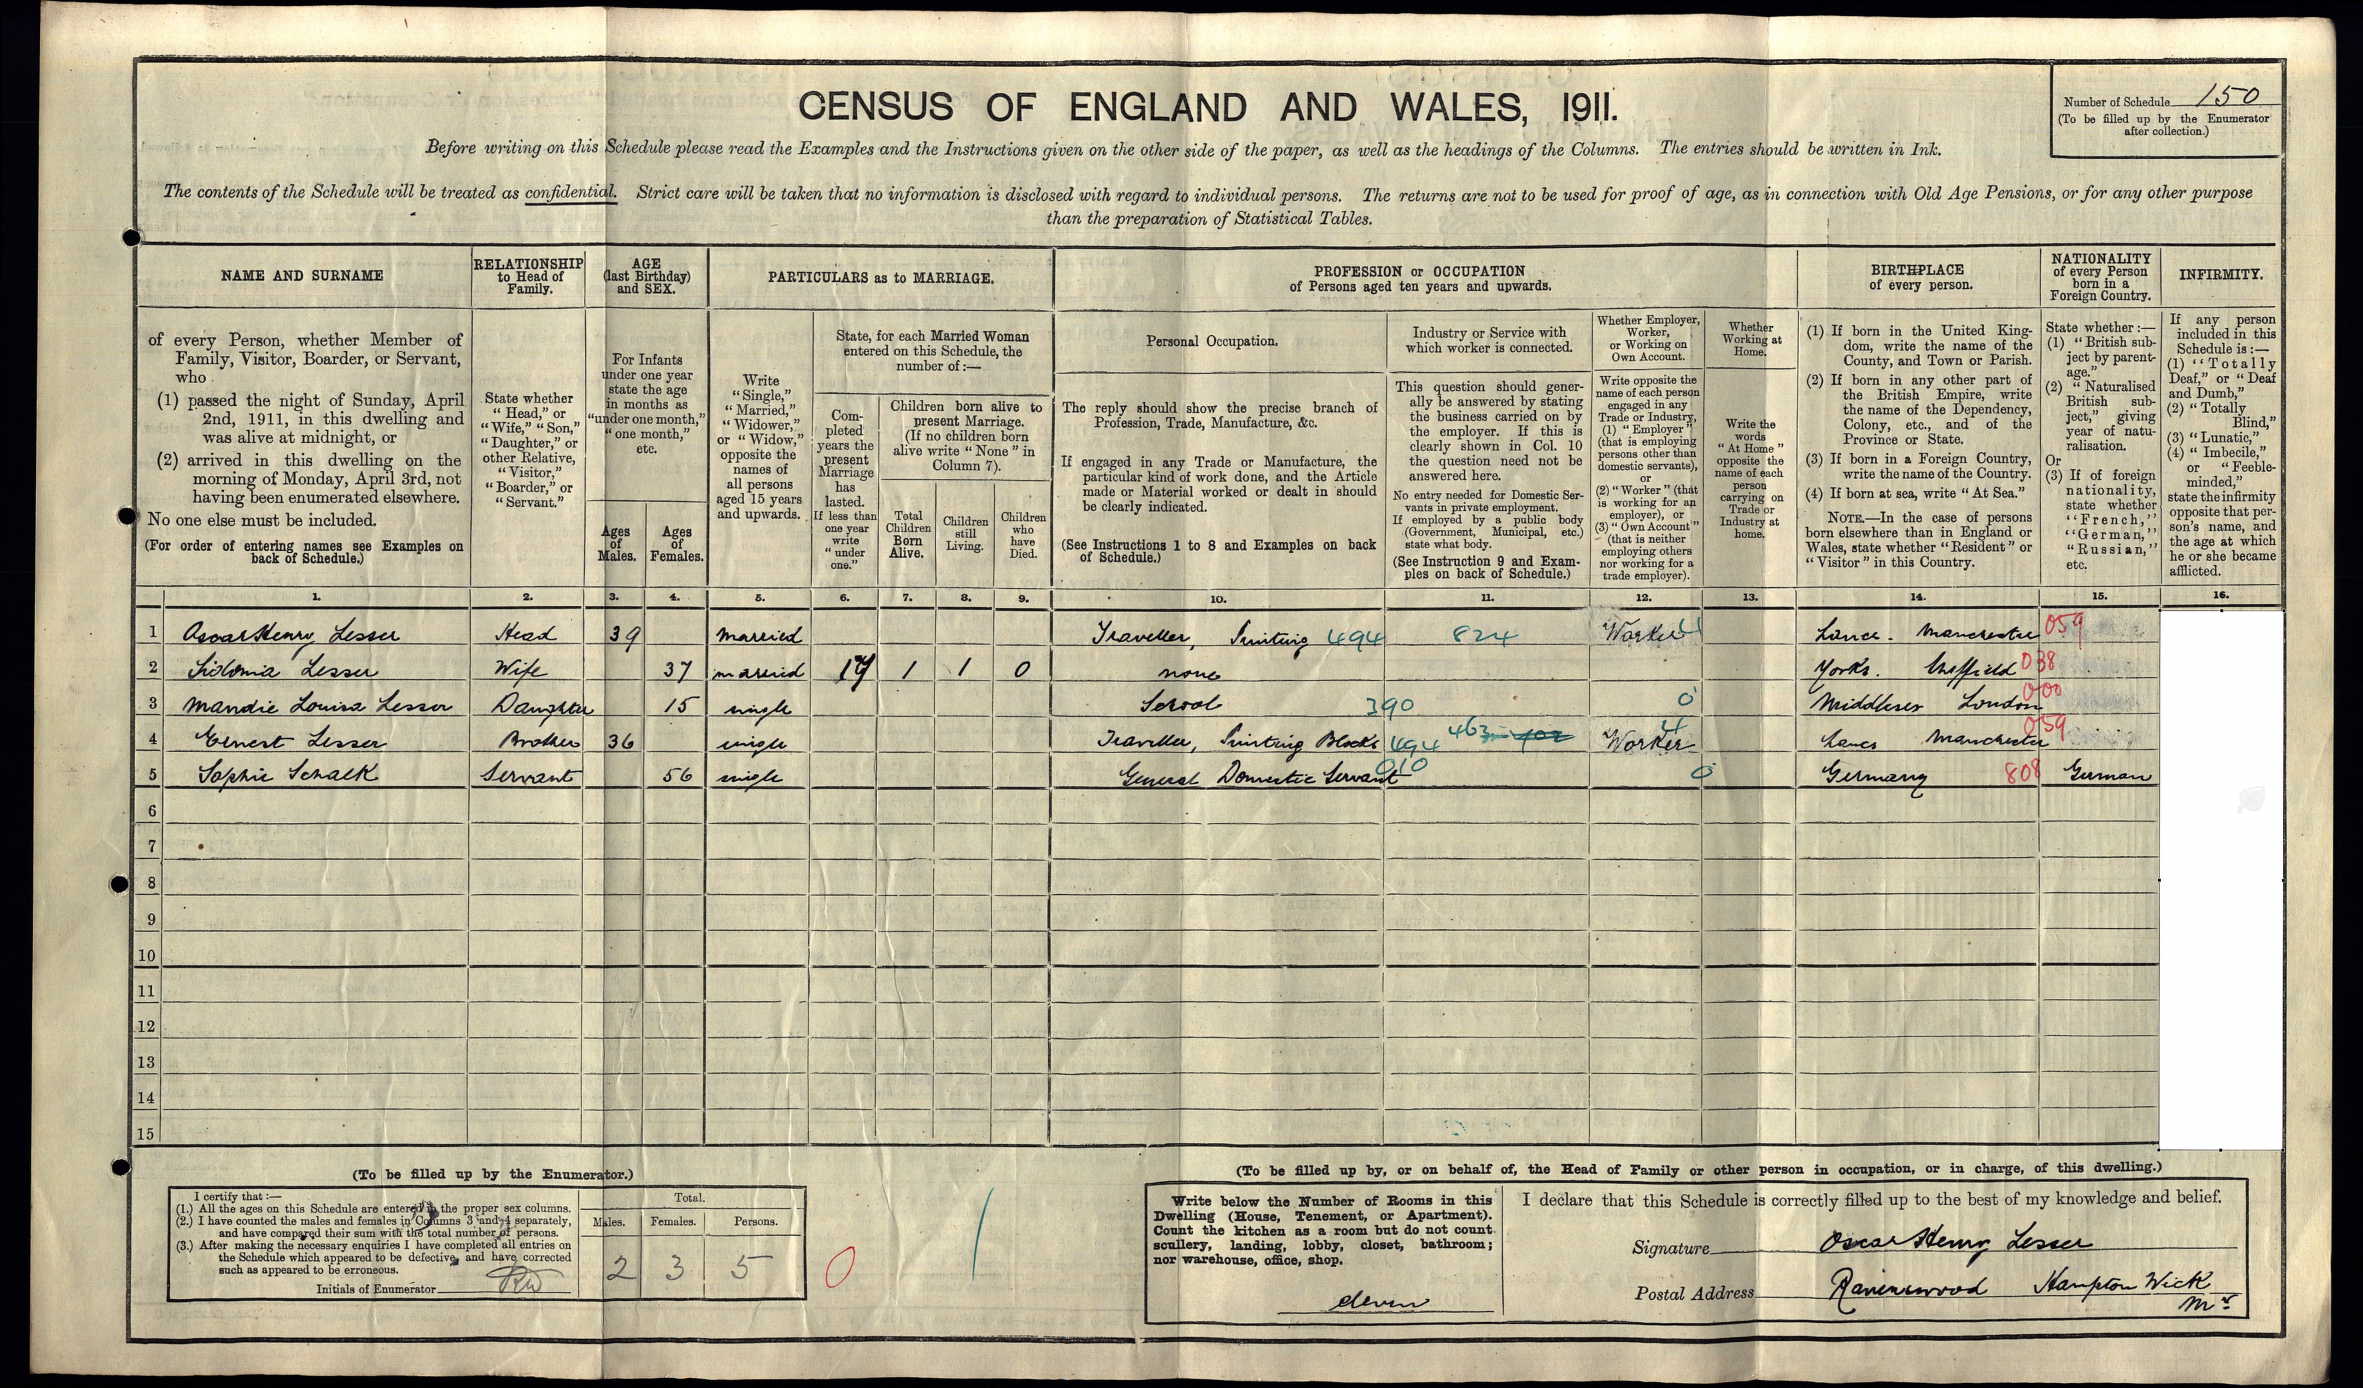 CENSUS OF ENGLAND AND WALES, 1911.
Number of Schedule 150
(To be filled up by the Enumerator
after collection.)
Before writing on this Schedule please read the Examples and the Instructions given on the other side of the paper, as well as the headings of the Columns. The entries should be written in Ink.
The contents of the Schedule will be treated as confidential. Strict care will be taken that no information is disclosed with regard to individual persons. The returns are not to be used for proof of age, as in connection with Old Age Pensions, or for any other purpose
than the preparation of Statistical Tables.
NAME AND SURNAME
of every Person, whether Member of
Family, Visitor, Boarder, or Servant,
who
(1) passed the night of Sunday, April
2nd, 1911, in this dwelling and
was alive at midnight, or
(2) arrived in this dwelling on the
morning of Monday, April 3rd, not
having been enumerated elsewhere.
No one else must be included.
(For order of entering names see Examples on
back of Schedule.)
RELATIONSHIP
to Head of
Family.
State whether
"Head," or
"Wife," "Son,"
"Daughter," or
other Relative,
"Visitor,"
"Boarder," or
"Servant."
AGE
(last Birthday)
and SEX.
For Infants
under one year
state the age
in months as
"under one month,"
"one month,"
etc.
Ages
of
Males.
Ages
of
Females.
PARTICULARS as to MARRIAGE.
Write
"Single,"
"Married,"
"Widower,"
or "Widow,"
opposite the
names of
all persons
aged 15 years
and upwards.
State, for each Married Woman
entered on this Schedule, the
number of:—
Com-
pleted
years the
present
Marriage
has
lasted.
If less than
one year
write
"under
one."
Children born alive to
present Marriage.
(If no children born
alive write "None" in
Column 7).
Total
Children
Born
Alive.
Children
still
Living.
Children
who
have
Died.
PROFESSION or OCCUPATION
of Persons aged ten years and upwards.
Personal Occupation.
The reply should show the precise branch of
Profession, Trade, Manufacture, &c.
If engaged in any Trade or Manufacture, the
particular kind of work done, and the Article
made or Material worked or dealt in should
be clearly indicated.
(See Instructions 1 to 8 and Examples on back
of Schedule.)
Industry or Service with
which worker is connected.
This question should gener-
ally be answered by stating
the business carried on by
the employer. If this is
clearly shown in Col. 10
the question need not be
answered here.
No entry needed for Domestic Ser-
vants in private employment.
If employed by a public body
(Government, Municipal, etc.)
state what body.
(See Instruction 9 and Exam-
ples on back of Schedule.)
Whether Employer,
Worker,
or Working on
Own Account.
Write opposite the
name of each person
engaged in any
Trade or Industry,
(1) "Employer"
(that is employing
persons other than
domestic servants),
or
(2) "Worker" (that
is working for an
employer), or
(3) "Own Account"
(that is neither
employing others
nor working for a
trade employer).
Whether
Working at
Home.
Write the
words
"At Home"
opposite the
name of each
person
carrying on
Trade or
Industry at
home.
BIRTHPLACE
of every person.
(1) If born in the United King-
dom, write the name of the
County, and Town or Parish.
(2) If born in any other part of
the British Empire, write
the name of the Dependency,
Colony, etc., and of the
Province or State.
(3) If born in a Foreign Country,
write the name of the Country.
(4) If born at sea, write "At Sea."
NOTE.—In the case of persons
born elsewhere than in England or
Wales, state whether "Resident" or
"Visitor" in this Country.
NATIONALITY
of every Person
born in a
Foreign Country.
State whether:—
(1) "British sub-
ject by parent-
age."
(2) "Naturalised
British sub-
ject," giving
year of natu-
ralisation.
Or
(3) If of foreign
nationality,
state whether
"French,"
"German,"
"Russian,"
etc.
INFIRMITY.
If any person
included in this
Schedule is:—
(1) "Totally
Deaf," or "Deaf
and Dumb,"
(2) "Totally
Blind,"
(3) "Lunatic,"
(4) "Imbecile,"
or "Feeble-
minded,"
state the infirmity
opposite that per-
son's name, and
the age at which
he or she became
afflicted.
1. 2. 3. 4. 5. 6. 7. 8. 9. 10. 11. 12. 13. 14. 15. 16.
1 Oscar Henry Lesser Head 39 Married Traveller, Printing 494 824 Worker Lancs. Manchester 059
2 Sidonia Lesser Wife 37 married 17 1 1 0 none Yorks. Sheffield 038
3 Mandie Louisa Lesser Daughter 15 single School 390 0 Middlesex London 000
4 Ernest Lesser Brother 36 single Traveller, Printing Blocks 494 463 Worker 4 Lancs Manchester 059
5 Sophie Schalk Servant 56 single General Domestic Servant 010 0 Germany 808 German
6
7
8
9
10
11
12
13
14
15
(To be filled up by the Enumerator.)
I certify that:—
(1.) All the ages on this Schedule are entered in the proper sex columns.
(2.) I have counted the males and females in Columns 3 and 4 separately,
and have compared their sum with the total number of persons.
(3.) After making the necessary enquiries I have completed all entries on
the Schedule which appeared to be defective, and have corrected
such as appeared to be erroneous.
Initials of Enumerator
Total.
Males. Females. Persons.
2 3 5
0
(To be filled up by, or on behalf of, the Head of Family or other person in occupation, or in charge, of this dwelling.)
Write below the Number of Rooms in this
Dwelling (House, Tenement, or Apartment).
Count the kitchen as a room but do not count
scullery, landing, lobby, closet, bathroom;
nor warehouse, office, shop.
eleven
I declare that this Schedule is correctly filled up to the best of my knowledge and belief.
Signature Oscar Henry Lesser
Postal Address Ravenswood Hampton Wick